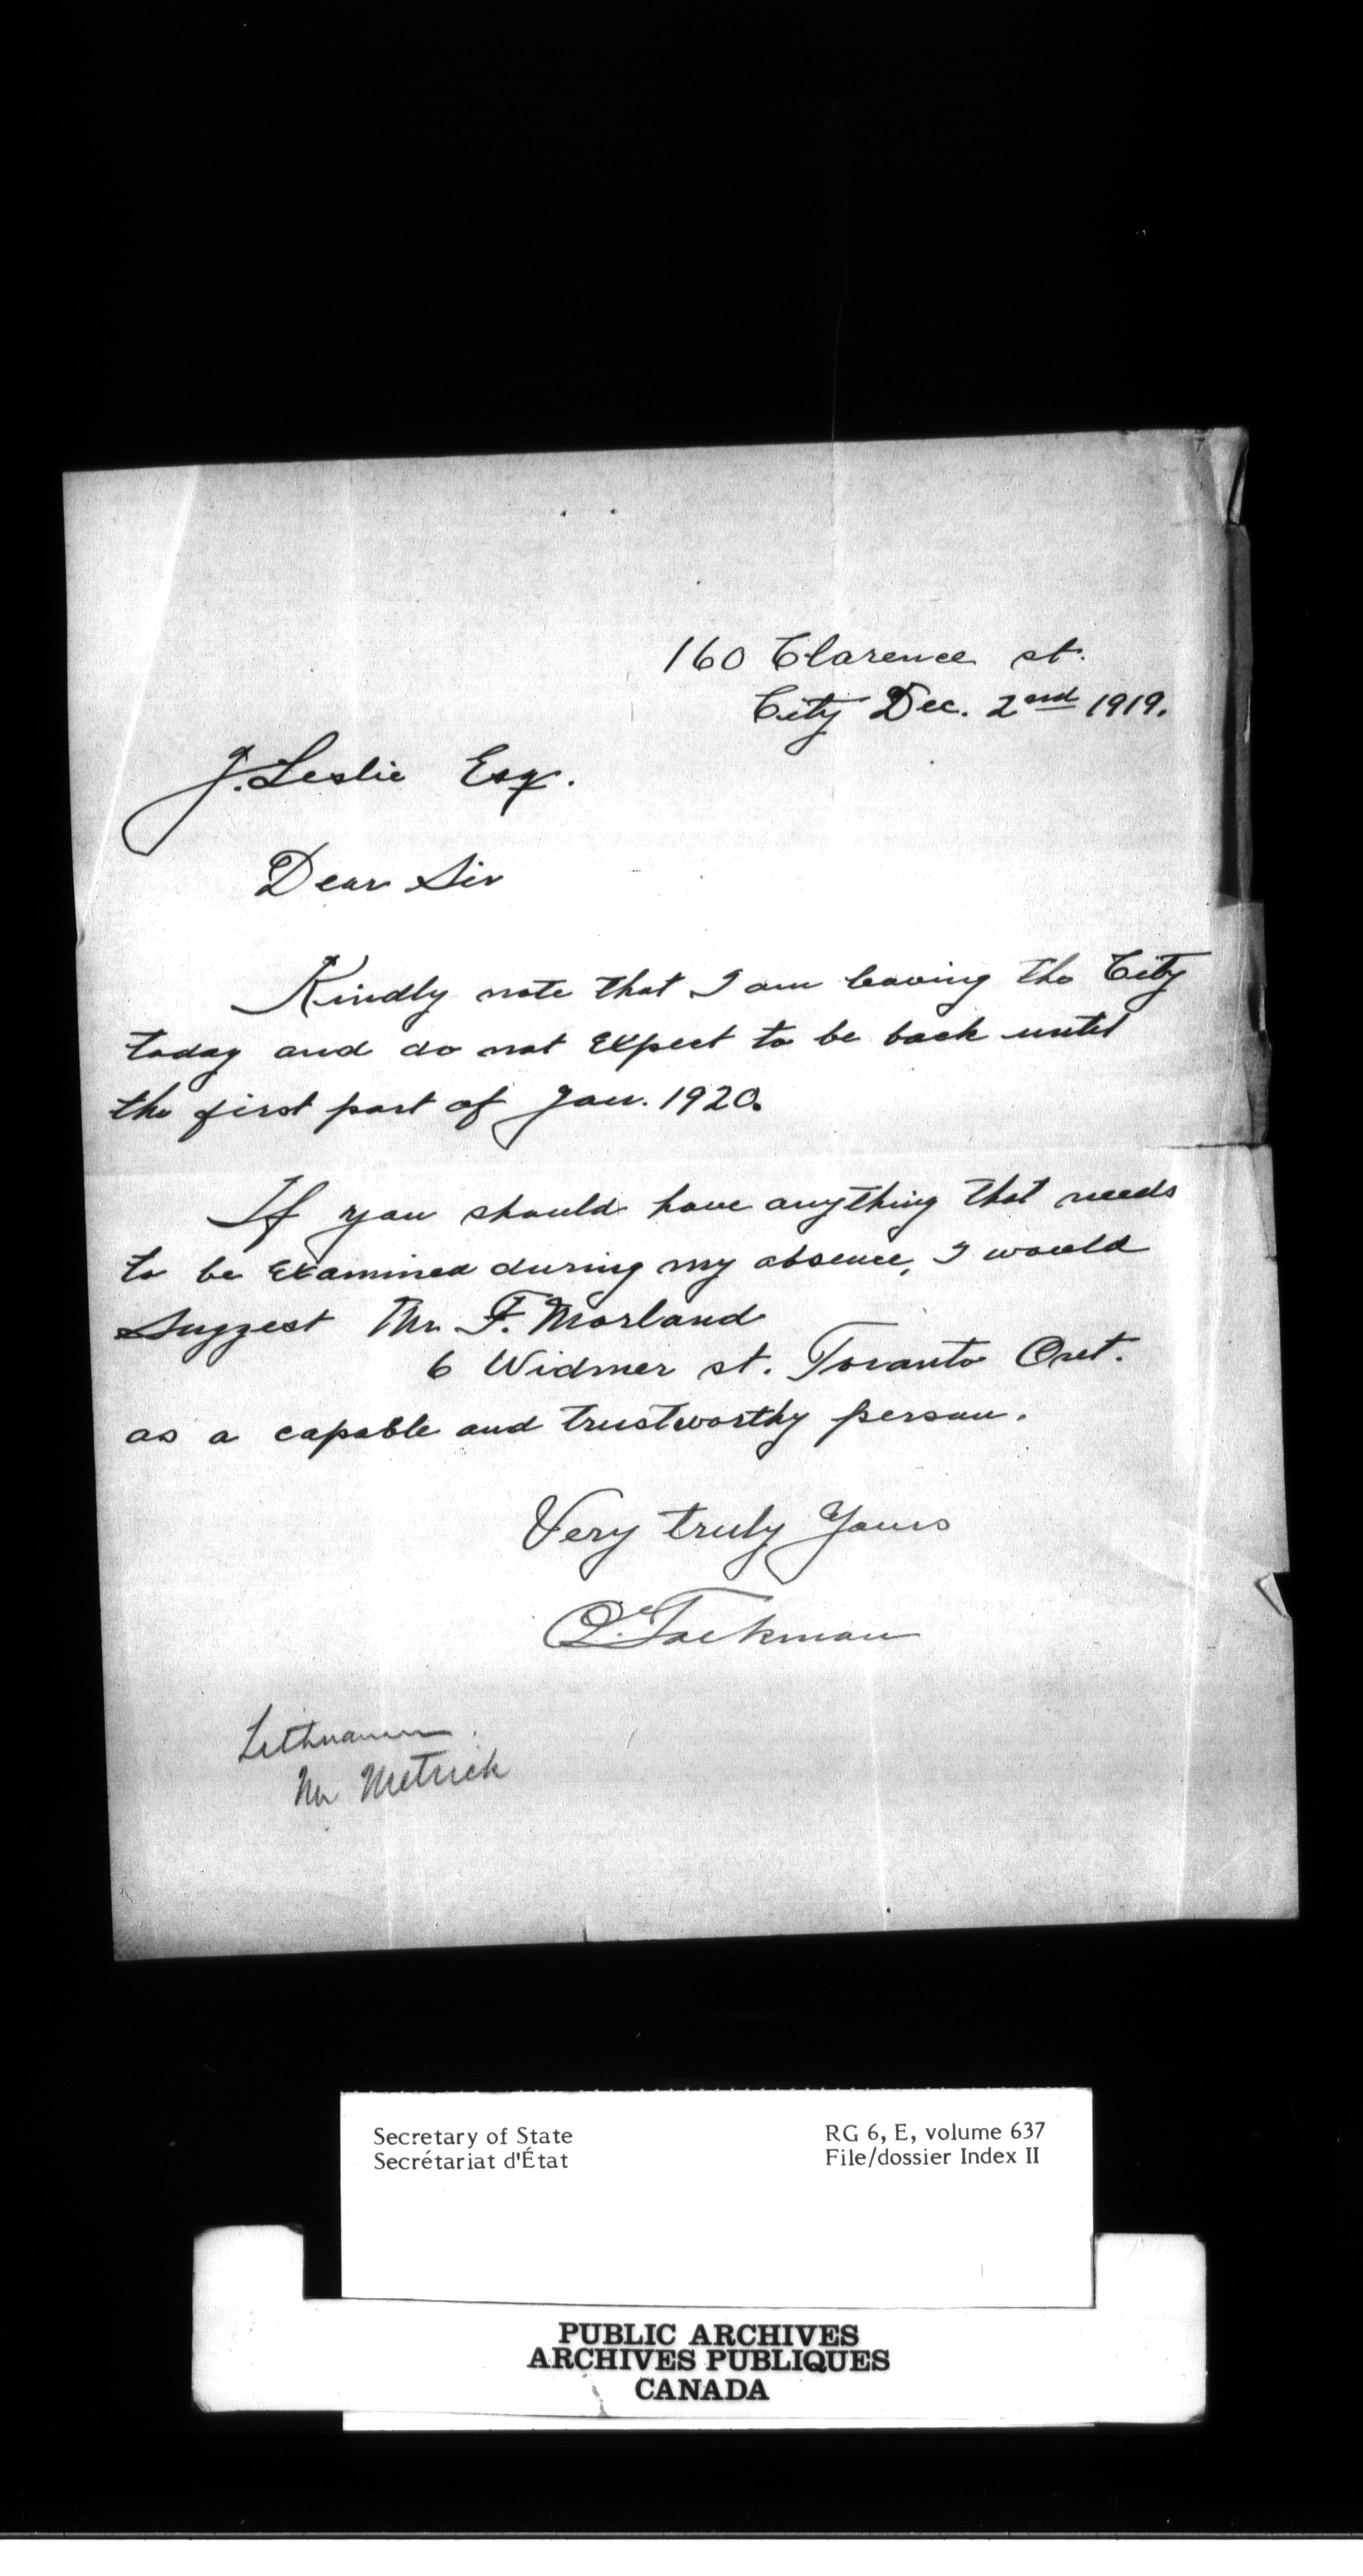 160 Clarence st.
City Dec. 2nd 1919.
J. Leslie Esq.
Dear Sir
Kindly note that I am leaving the City
today and do not expect to be back until
the first part of Jan. 1920.
If you should have anything that needs
to be examined during my absence, I would
suggest Mr. F. Morland
6 Widmer st. Toronto Ont.
as a capable and trustworthy person.
Very truly Yours
Tackman
Lithuanian
Mr Metrick
Secretary of State
Secrétariat d'État
RG 6, E, volume 637
File/dossier Index II
PUBLIC ARCHIVES
ARCHIVES PUBLIQUES
CANADA